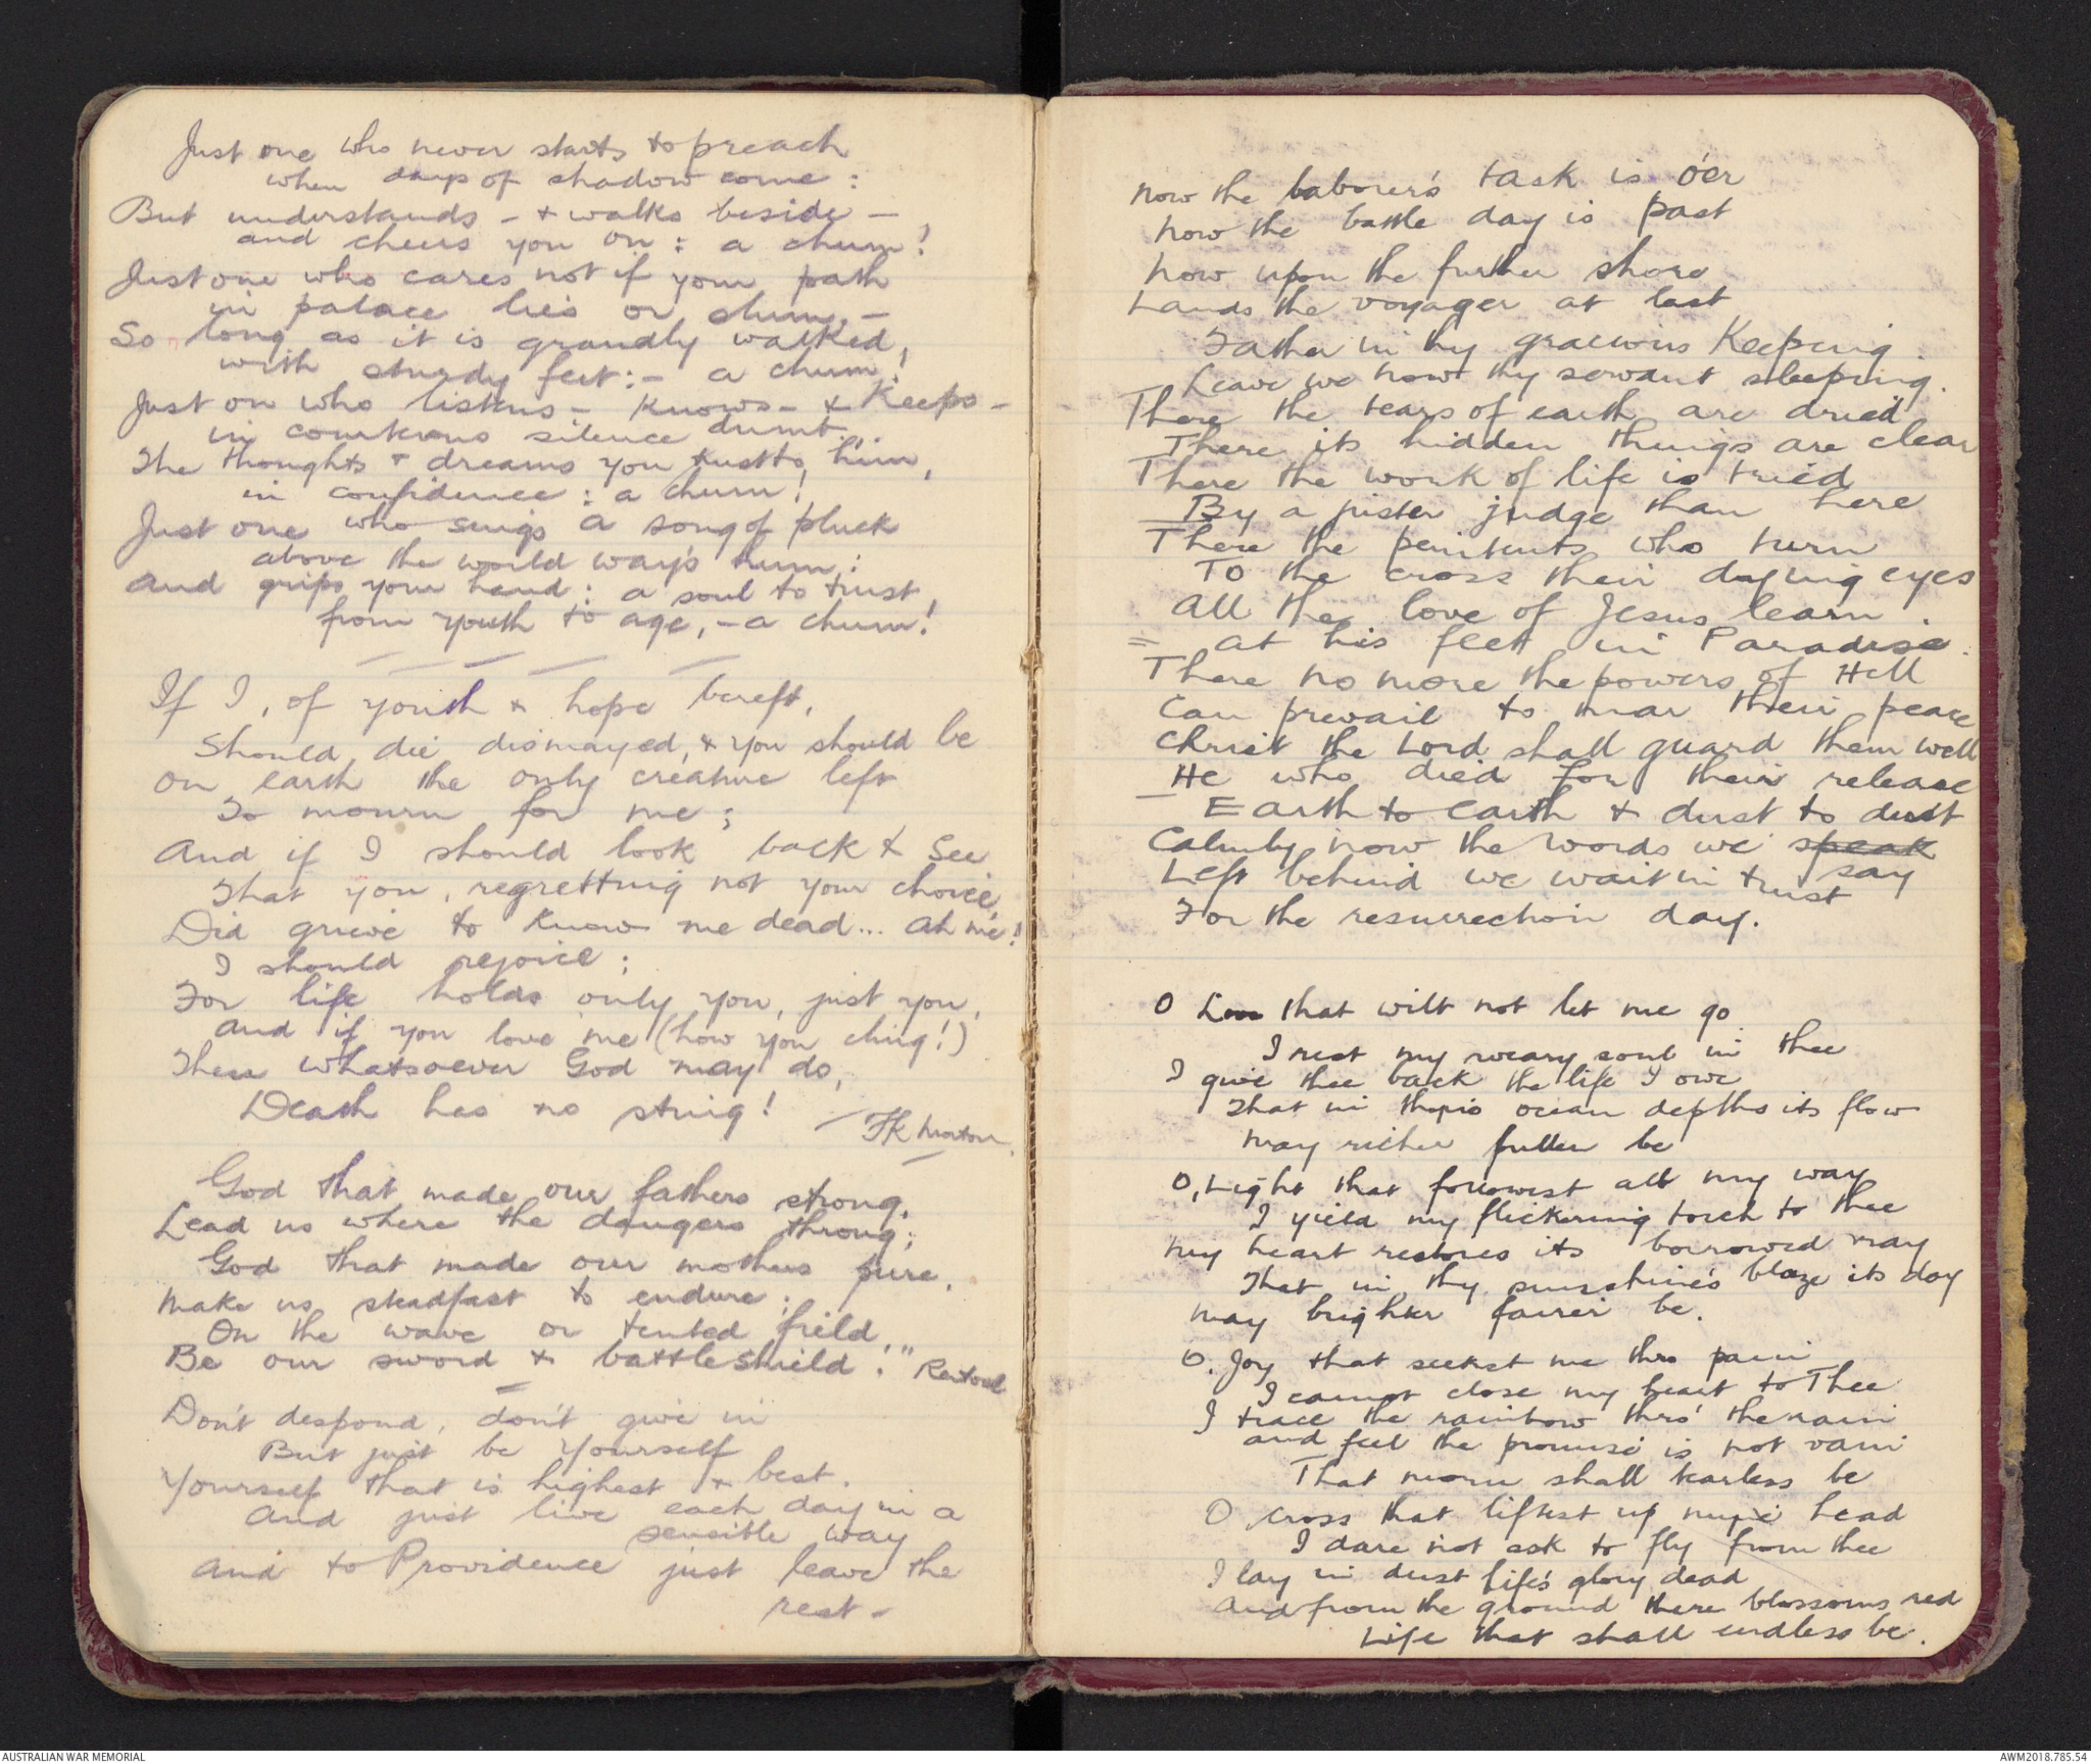 Just one who never starts to preach
when days of shadow come :
But understands - & walks beside -
and cheers you on : a chum !
Just one who cares not if your path
in palace lies or slum, -
So long as it is grandly walked,
with sturdy feet :- a chum !
Just on who listens - Knows - & Keeps -
in courteous silence dumb
The thoughts & dreams you trust to him,
in confidence : a chum !
Just one who sings a song of pluck
above the world way's hum :
and grips your hand : a soul to trust,
from youth to age, - a chum !
If I, of youth & hope bereft,
Should die dismayed, & you should be
on earth the only creature left
To mourn for me ;
And if I should look back & see
That you, regretting not your choice,
Did grieve to know me dead... ah me !
I should rejoice ;
For life holds only you, just you,
and if you love me (how you cling !)
Then whatsoever God may do,
Death has no sting !
God that made our fathers strong,
Lead us where the dangers throng ;
God that made our mothers pure,
Make us steadfast to endure ;
On the wave or tented field
Be our sword & battleshield !" Rentoul
Don't despond, don't give in
But just be Yourself
Yourself that is highest & best.
And just live each day in a
sensible way
and to Providence just leave the
rest -
Now the laborer's task is o'er
Now the battle day is past
Now upon the further shore
Lands the voyager at last
Father in thy gracious Keeping
Leave we now thy servant sleeping.
There the tears of earth are dried
There its hidden things are clear
There the work of life is tried
By a juster judge than here
There the penitents who turn
To the cross their dying eyes
All the love of Jesus learn
at his feet in Paradise.
There no more the powers of Hell
Can prevail to mar their peace
Christ the Lord shall guard them well
He who died for their release
Earth to earth & dust to dust
Calmly now the words we speak
say
Left behind we wait in trust
For the resurrection day.
O Love that wilt not let me go
I rest my weary soul in thee
I give thee back the life I owe
That in ocean depths its flow
may richer fuller be
O, Light that followest all my way
I yield my flickering torch to thee
my heart restores its borrowed ray
That in thy sunshine's blaze its day
may brighter fairer be.
O. Joy that seekest me thro pain
I cannot close my heart to Thee
I trace the rainbow thro' the rain
and feel the promise is not vain
That morn shall tearless be
O cross that liftest up my head
I dare not ask to fly from thee
I lay in dust life's glory dead
and from the ground there blossoms red
Life that shall endless be.
AUSTRALIAN WAR MEMORIAL
AWM2018.785.54